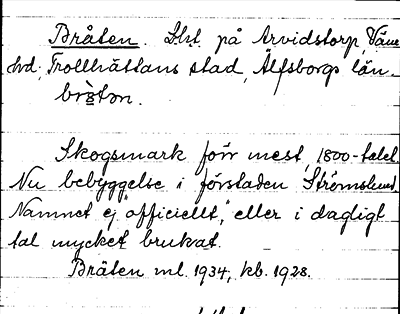 Bråten. Lht. på Arvidstorp, Väne
hd, Trollhättans stad, Älfsborgs län.
Skogsmark förr mest, 1800-talet.
Nu bebyggelse i förstaden Strömslund.
Namnet ej "officiellt", eller i dagligt
tal mycket brukat.
Bråten ml. 1934, kb. 1928.